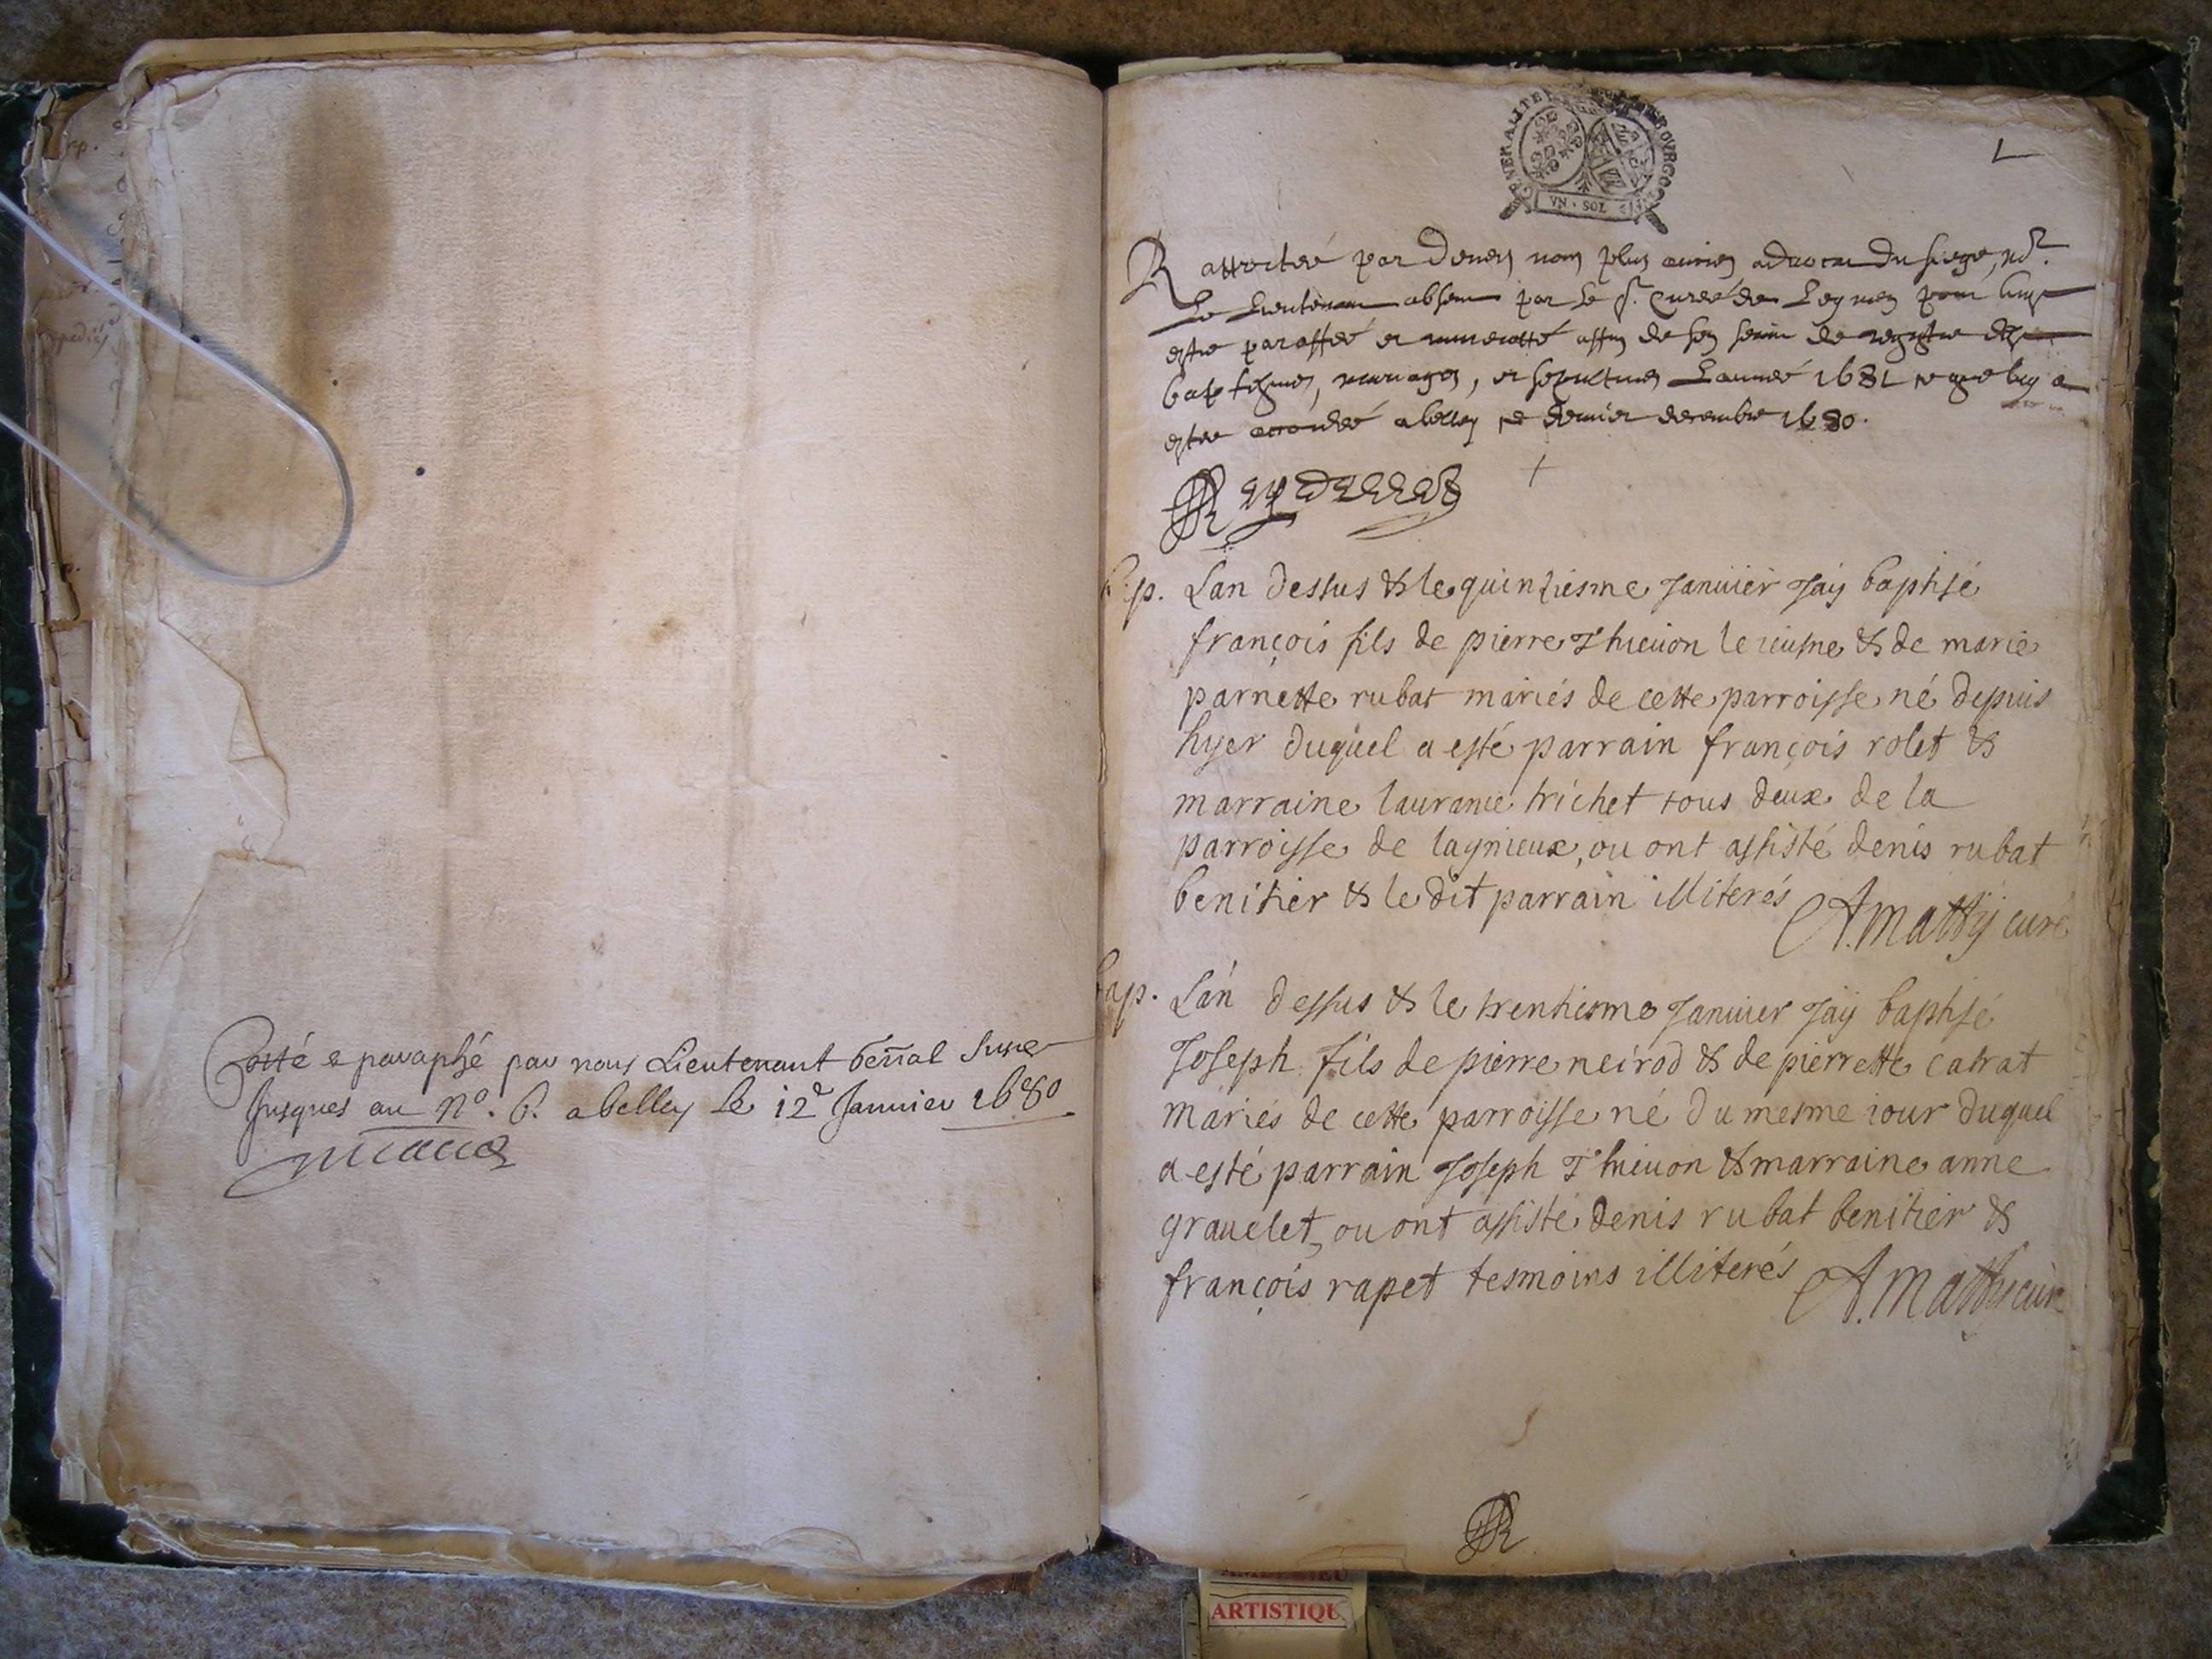 Cotté e paraphé par nous Lieutenant genal
Jusques au No. 6. a belley le 12e Janvier 1680
L
GENERALITE BOVRGO
VN · SOL
par devan nous plus advocat du siege,
Le Lieutenant absent par le Sr. Curé de Leymen pour
estre paraffé et affin de servir de registre
baptesmes, mariages, et sepultures L'année 1681
estre a belley le dernier decembre 1680.
bap. Lan dessus & le quinziesme Januier Jaÿ baptisé
françois fils de pierre Thieuon le ieusne & de marie
parnette rubat mariés de cette parroisse né depuis
hyer duquel a esté parrain françois rolet &
marraine laurance trichet tous deux de la
parroisse de lagnieux, ou ont assisté denis rubat
benitier & le dit parrain illiterés
A. Mathÿ curé
bap. Lan dessus & le trentiesme Januier Jaÿ baptisé
Joseph fils de pierre neirod & de pierrette catrat
mariés de cette parroisse né du mesme iour duquel
a esté parrain Joseph Thieuon & marraine anne
grauelet, ou ont assisté denis rubat benitier &
françois rapet tesmoins illiterés
A. Mathÿ cur
ARTISTIQU